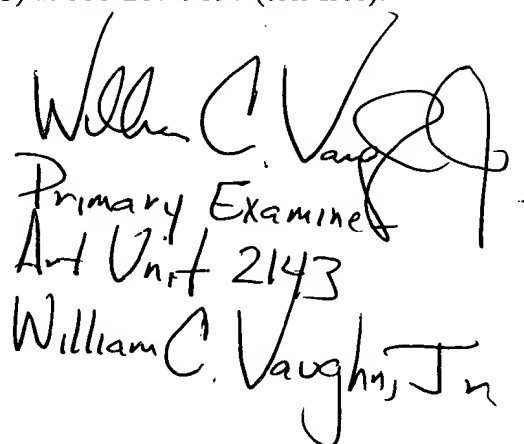 William C. Vaughn Jr
Primary Examiner
Art Unit 2143
William C. Vaughn, Jr